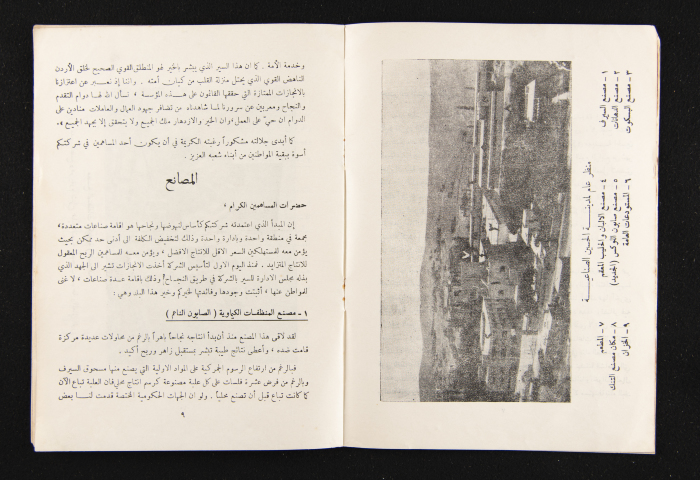 وخدمة الأمة . كما ان هذا السير الذي يبشر بالخير لهو المنطلق القوي الصحيح لخلق الأردن
الناهض القوي الذي يحتل منزلة القلب من كيان أمته . وإننا إذ نعبر عن اعتزازنا
بالانجازات الممتازة التي حققها القائمون على هذه المؤسسة ، نسأل الله لها دوام التقدم
والنجاح ومعربين عن سرورنا لما شاهدناه من تضافر جهود العمال والعاملات منادين على
الدوام ان حيّ على العمل فوان الخير والازدهار ملك الجميع ولا يتحقق إلا بجهد الجميع ».
كما أبدى جلالته مشكوراً رغبته الكريمة في أن يكون أحد المساهمين في شركتكم
أسوة ببقية المواطنين من أبناء شعبه العزيز .
المصانع
حضرات المساهمين الكرام ،
إن المبدأ الذي اعتمدته شركتكم كأساس لنهوضها ونجاحها هو اقامة صناعات متعددة ،
مجمعة في منطقة واحدة وإدارة واحدة وذلك لتخفيض الكلفة الى أدنى حد ممكن بحيث
يؤمن معه للمستهلكين السعر الاقل للانتاج الافضل ، ويؤمن معه للمساهمين الربح المعقول
للانتاج المتزايد . فمنذ اليوم الاول لتأسيس الشركة أخذت الانجازات تشير الى الجهد الذي
بذله مجلس الادارة للسير بالشركة في طريق النجاح ؛ وذلك باقامة عدة صناعات ، لا غنى
للمواطن عنها ، أثبتت وجودها وفائدتها لخيركم وخير هذا البلد وهي :
١ - مصنع المنظفات الكياوية ( الصابون الناعم ) :
لقد لاقى هذا المصنع منذ أن بدأ انتاجه نجاحاً باهراً بالرغم من محاولات عديدة مركزة
قامت ضده ، وأعطى نتائج طيبة تبشر بمستقبل زاهر وربح أكيد .
فبالرغم من ارتفاع الرسوم الجمركية على المواد الاولية التي يصنع منها مسحوق السيرف
وبالرغم من فرض عشرة فلسات على كل علبة مصنوعة كرسم انتاج محلي فان العلبة تباع الآن
كما كانت تباع قبل أن تصنع محلياً . ولو ان الجهات الحكومية المختصة قدمت لنا بعض
٩
منظر عام لمدينة الحسين الصناعية
١ - مصنع السيرف
٢ - مصنع الدهانات
٣ - مصنع البسكوت
٤ - مصنع الالبان والحليب المعقم
٥ - مصنع صابون التوكس (الجديد)
٦ - المستودعات العامة
٧ - المطعم
٨ - مكان مصنع التنك
٩ - الخزان